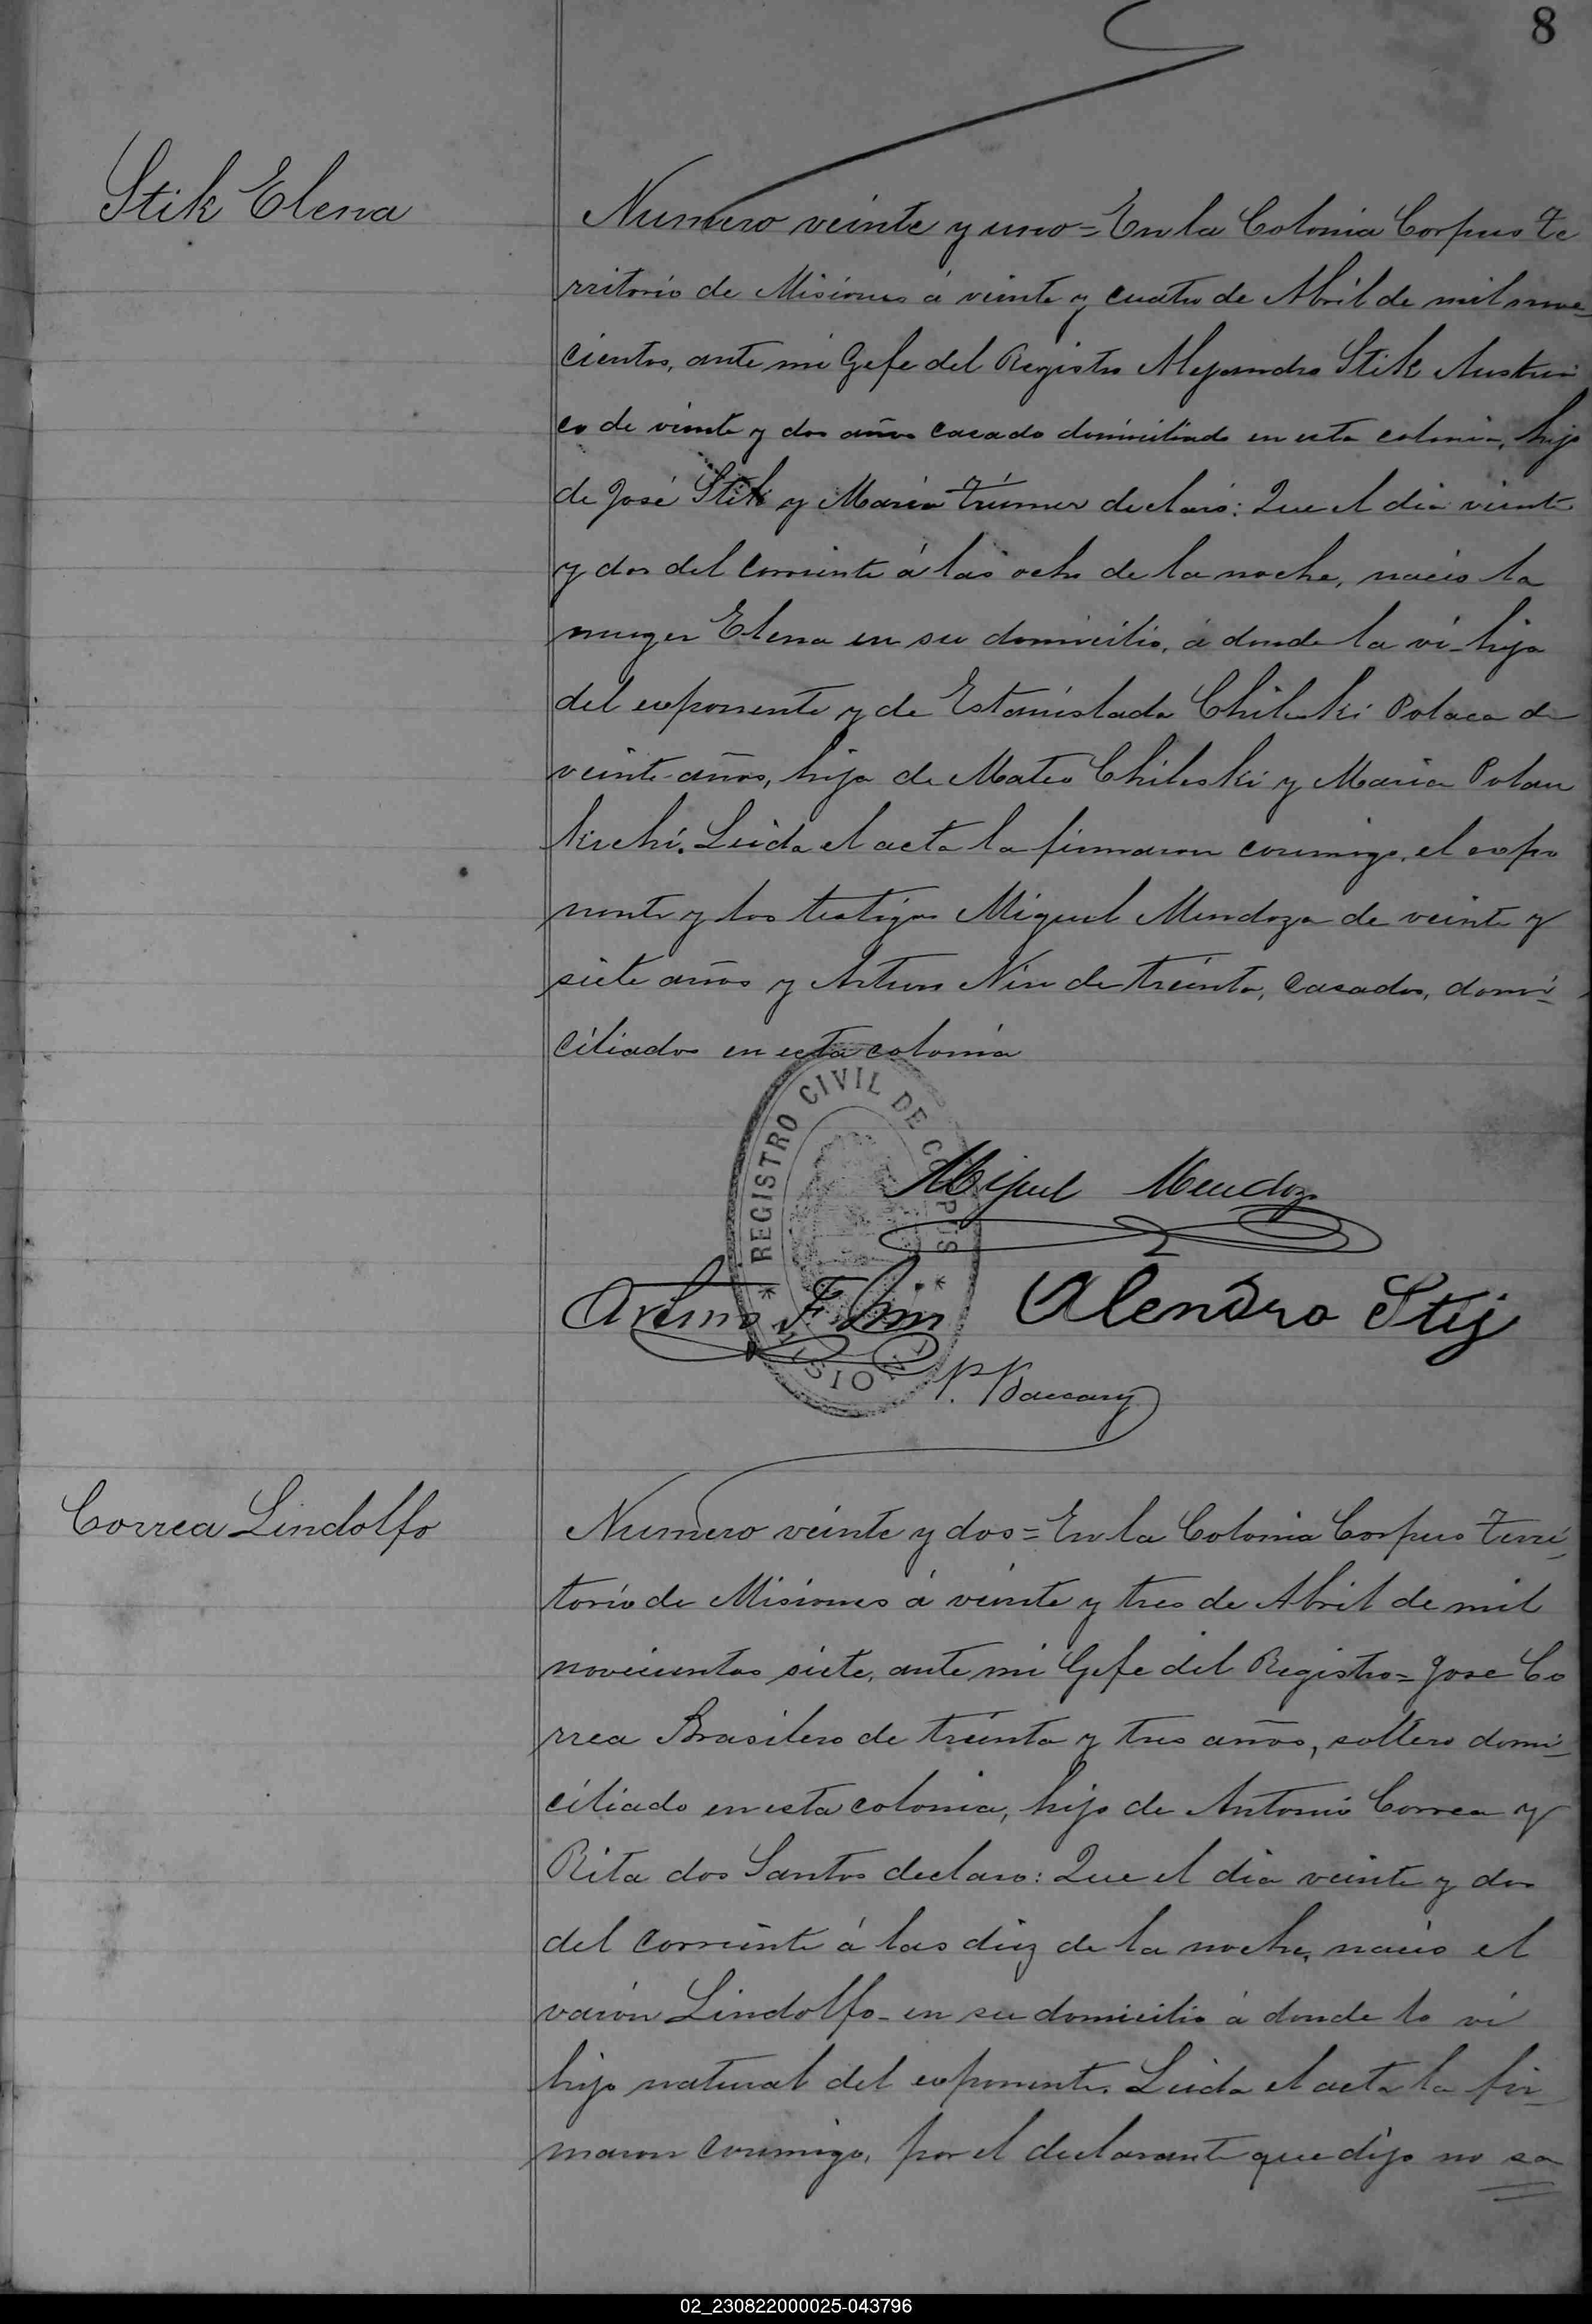 8
Stik Elena
Numero veinte y uno = En la Colonia Corpus Te
rritorio de Misiones á veinte y cuatro de Abril de mil nove-
cientos, ante mi Gefe del Registro Alejandro Stik Austria
co de veinte y dos años casado domiciliado en esta colonia, hijo
de José Stik y Maria Triumer declaró: Que el dia veinte
y dos del corriente á las ocho de la noche, nacio la
muger Elena en su domicilio, á donde la vi - hija
del exponente y de Estanislada Chileski Polaca de
veinte años, hija de Mateo Chileski y Maria Polan
kischi. Leida el acta la firmaron conmigo, el expo
nente y los testigos Miguel Mendoza de veinte y
siete años y Arturo Nin de treinta, casados, domi-
ciliados en esta colonia
REGISTRO CIVIL DE CORPUS
* MISIONES *
Miguel Mendoza
Arturo F. Nin Alendro Stij
P.
Correa Lindolfo
Numero veinte y dos = En la Colonia Corpus Terri-
torio de Misiones á veinte y tres de Abril de mil
novecientos siete, ante mi Gefe del Registro = José Co
rrea Brasilero de treinta y tres años, soltero domi-
ciliado en esta colonia, hijo de Antonio Correa y
Rita dos Santos declaro: Que el dia veinte y dos
del corriente á las diez de la noche, nacio el
varón Lindolfo - en su domicilio á donde lo vi
hijo natural del exponente. Leida el acta la fir-
maron conmigo, por el declarante que dijo no sa
02_230822000025-043796